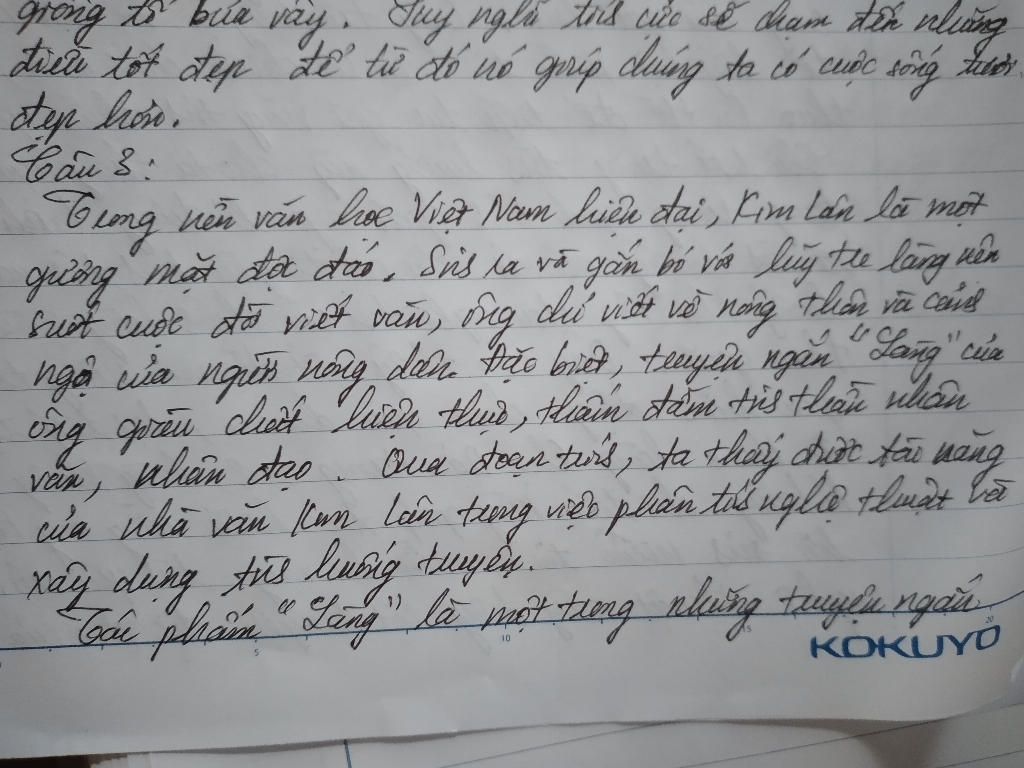 giông tố bủa vây. Suy nghĩ tích cực sẽ chạm đến những
điều tốt đẹp để từ đó nó giúp chúng ta có cuộc sống tươi
đẹp hơn.
Câu 3:
Trong nền văn học Việt Nam hiện đại, Kim Lân là một
gương mặt độc đáo. Sinh ra và gắn bó với luỹ tre làng nên
suốt cuộc đời viết văn, ông chỉ viết về nông thôn và cảnh
ngộ của người nông dân. Đặc biệt, truyện ngắn "Làng" của
ông giàu chất hiện thực, thấm đẫm tinh thần nhân
văn, nhân đạo. Qua đoạn trích, ta thấy được tài năng
của nhà văn Kim Lân trong việc phân tích nghệ thuật và
xây dựng tình huống truyện.
Tác phẩm "Làng" là một trong những truyện ngắn
5 10 15 20
KOKUYO